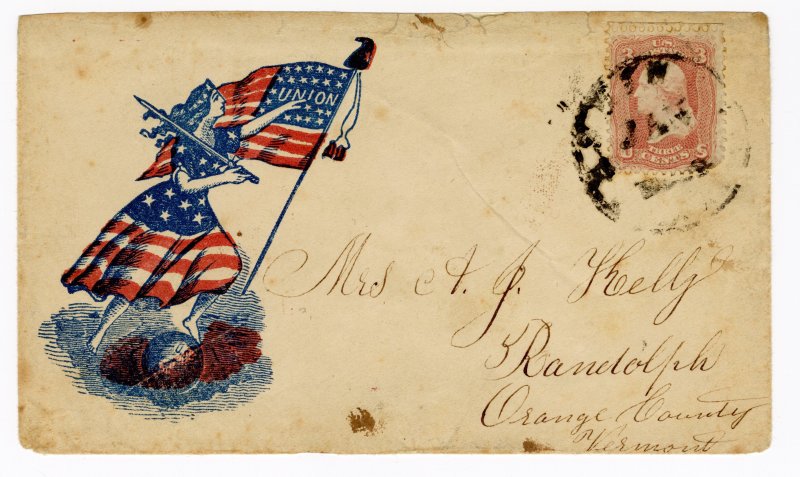 UNION
3 3
THREE
CENTS
JAN
Mrs A. J. Kelly
Randolph
Orange County
Vermont